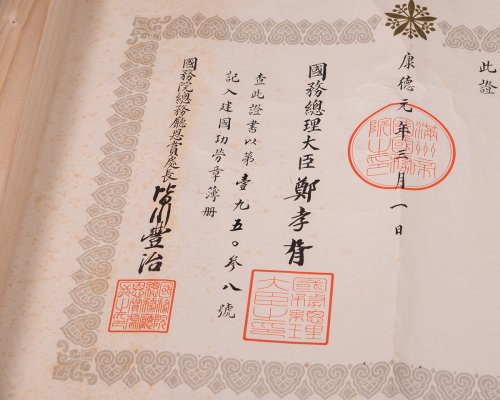 此證
康德元年三月一日
國務總理大臣 鄭孝胥
查此證書以第壹九五〇參八號
記入建國功勞章簿冊
國務院總務廳恩賞處長 皆川豐治